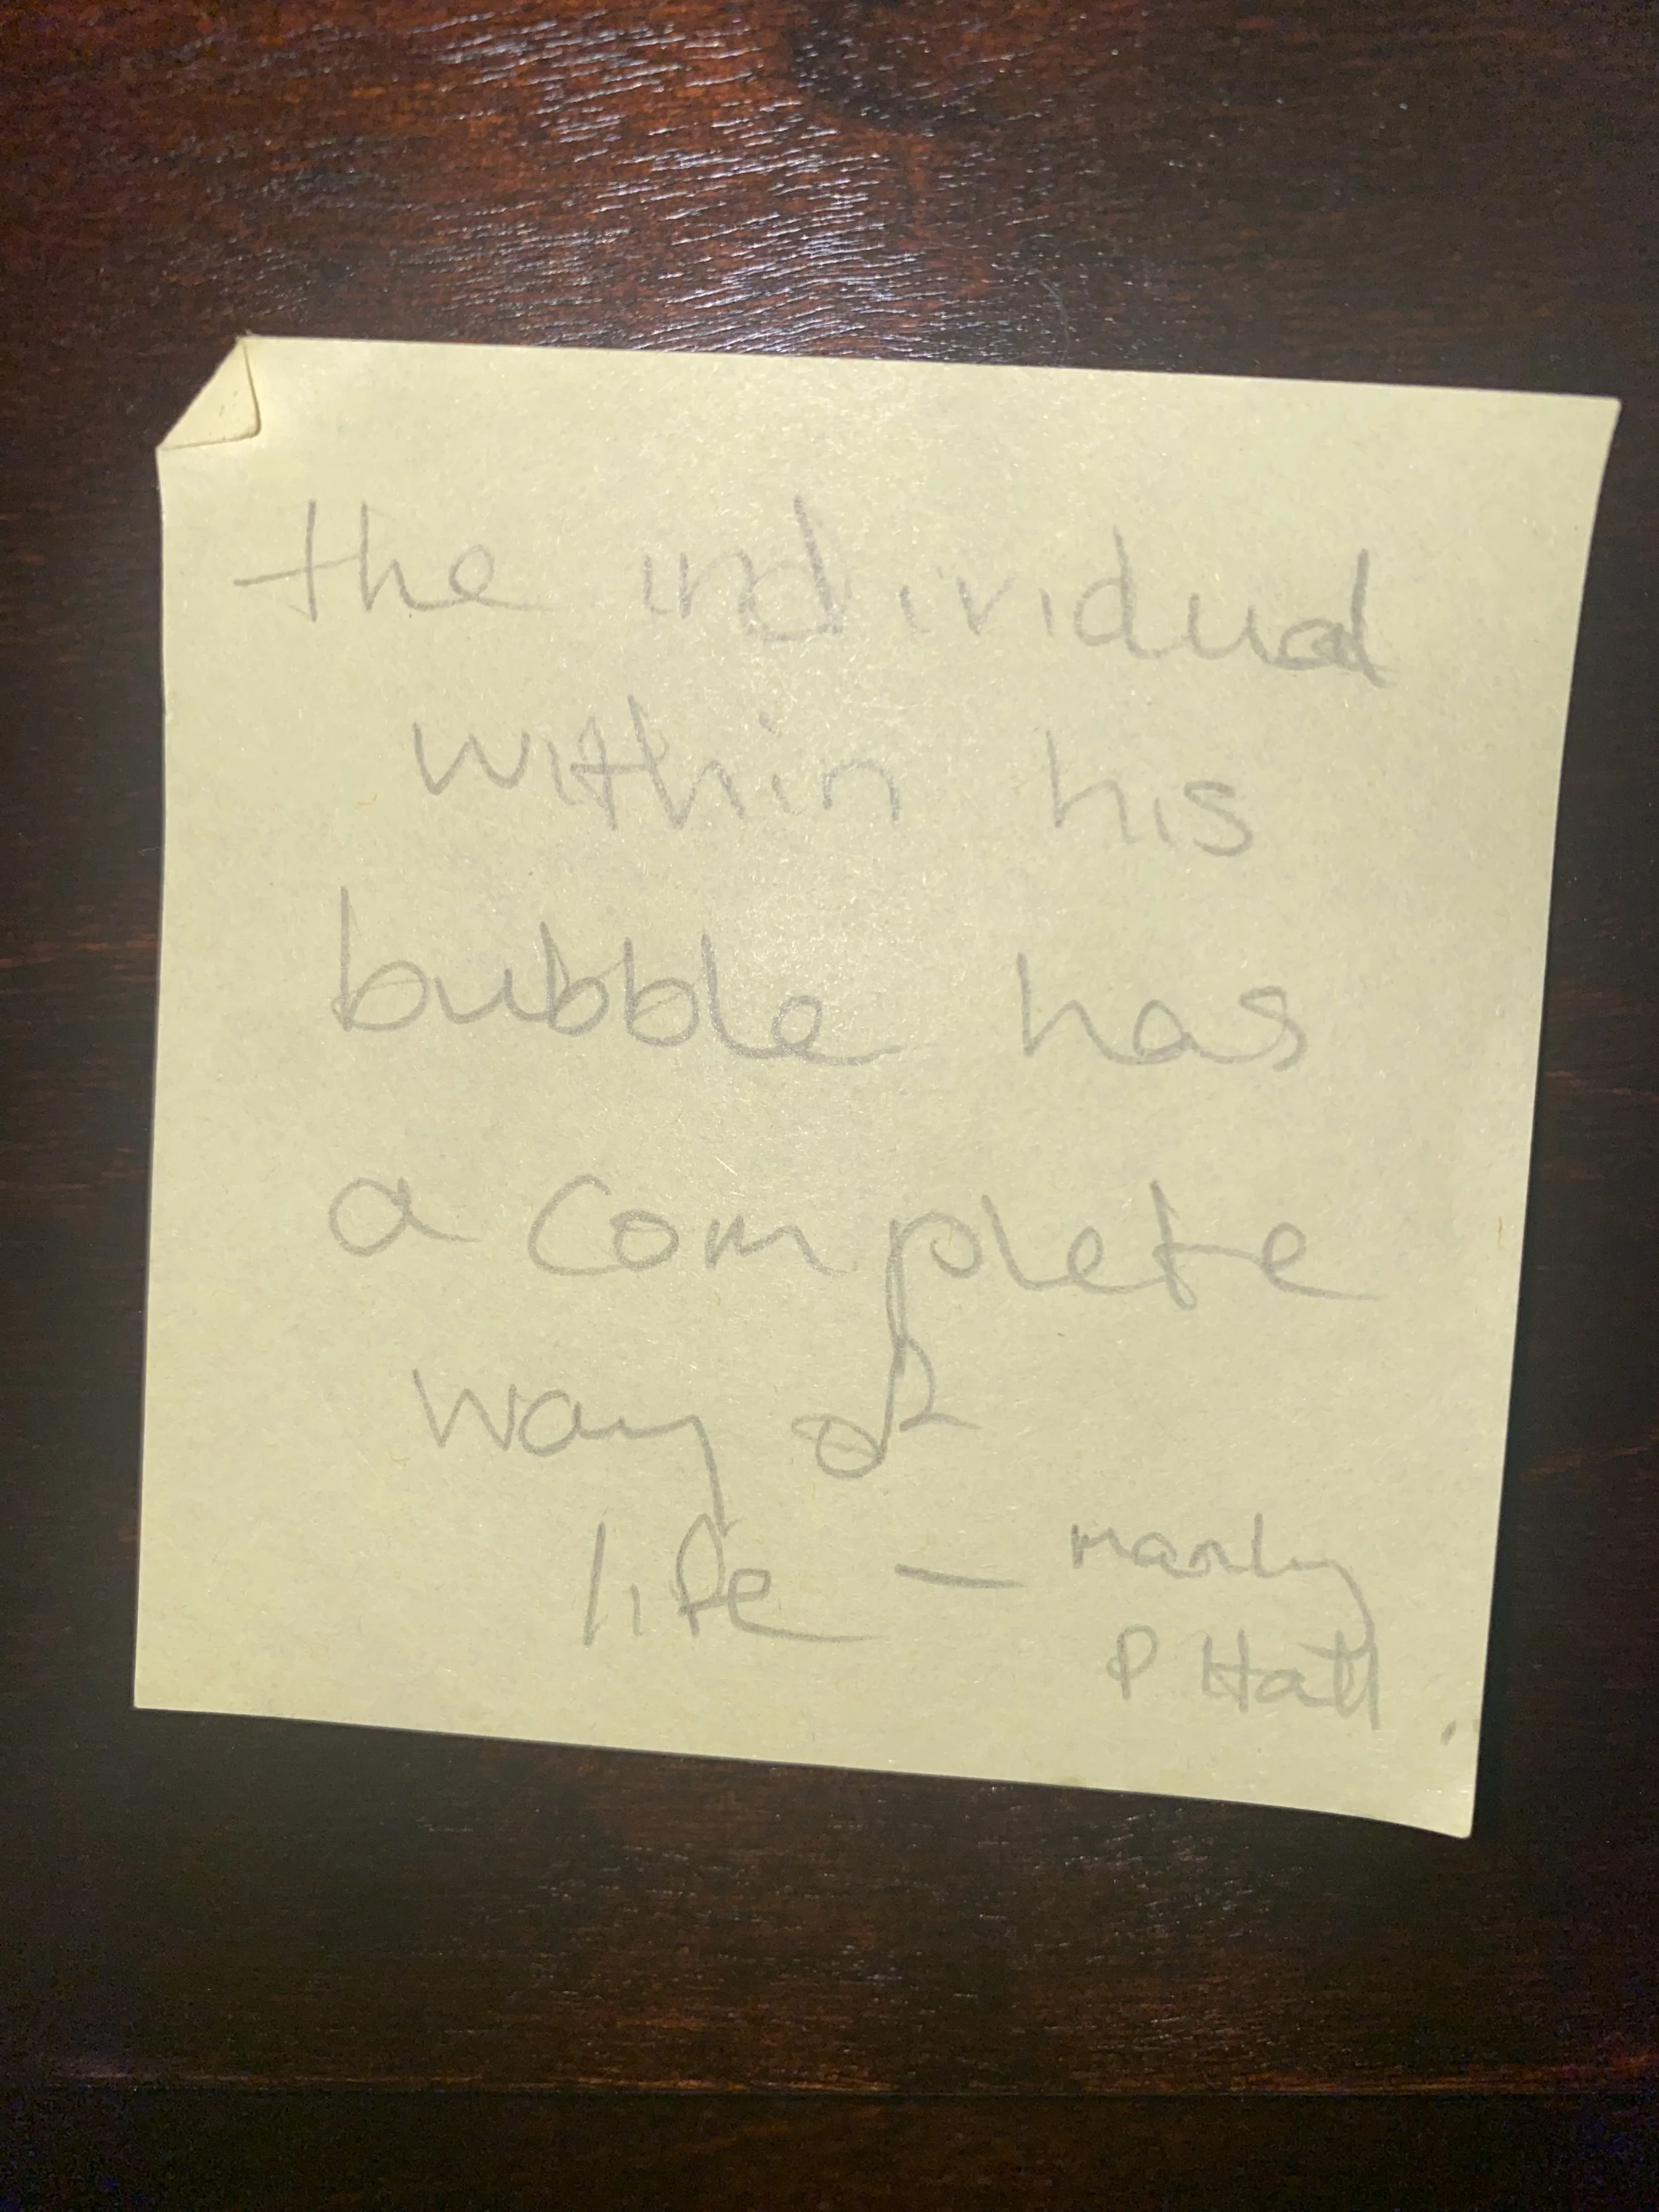 the individual
within his
bubble has
a complete
way of
life - manly
P Hall.